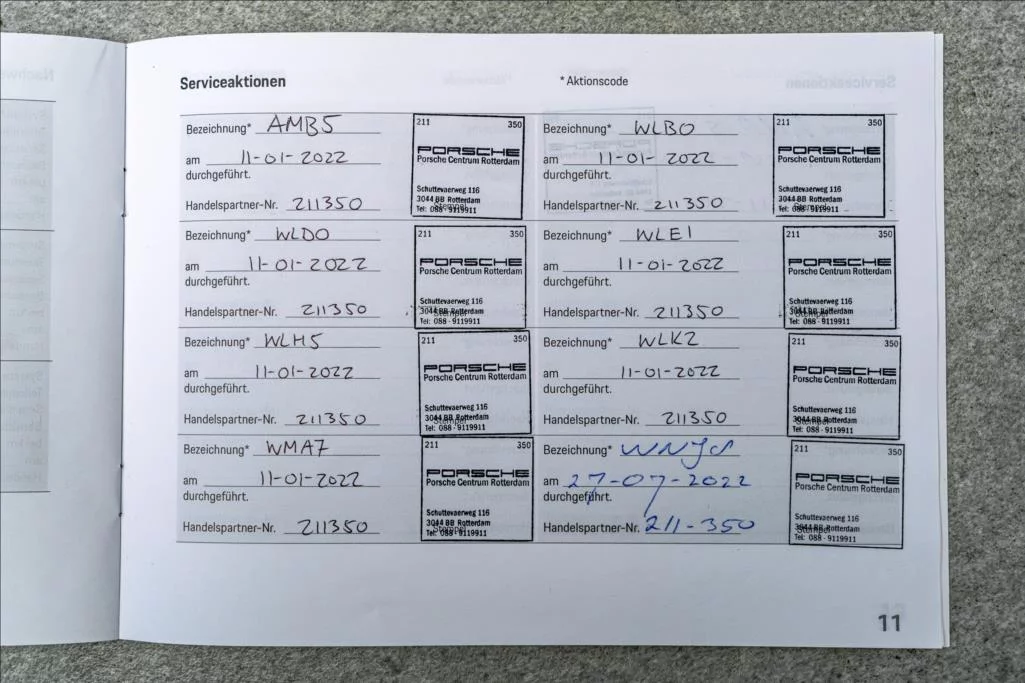 Serviceaktionen
* Aktionscode
Bezeichnung* AMB5
am 11-01-2022
durchgeführt.
Handelspartner-Nr. 211350
211 350
PORSCHE
Porsche Centrum Rotterdam
Schuttevaerweg 116
3044 BB Rotterdam
Stempel
Tel: 088 - 9119911
Bezeichnung* WLBO
am 11-01-2022
durchgeführt.
Handelspartner-Nr. 211350
211 350
PORSCHE
Porsche Centrum Rotterdam
Schuttevaerweg 116
3044 BB Rotterdam
Stempel
Tel: 088 - 9119911
Bezeichnung* WLDO
am 11-01-2022
durchgeführt.
Handelspartner-Nr. 211350
211 350
PORSCHE
Porsche Centrum Rotterdam
Schuttevaerweg 116
3044 BB Rotterdam
Stempel
Tel: 088 - 9119911
Bezeichnung* WLE1
am 11-01-2022
durchgeführt.
Handelspartner-Nr. 211350
211 350
PORSCHE
Porsche Centrum Rotterdam
Schuttevaerweg 116
3044 BB Rotterdam
Stempel
Tel: 088 - 9119911
Bezeichnung* WLH5
am 11-01-2022
durchgeführt.
Handelspartner-Nr. 211350
211 350
PORSCHE
Porsche Centrum Rotterdam
Schuttevaerweg 116
3044 BB Rotterdam
Stempel
Tel: 088 - 9119911
Bezeichnung* WLK2
am 11-01-2022
durchgeführt.
Handelspartner-Nr. 211350
211 350
PORSCHE
Porsche Centrum Rotterdam
Schuttevaerweg 116
3044 BB Rotterdam
Stempel
Tel: 088 - 9119911
Bezeichnung* WMA7
am 11-01-2022
durchgeführt.
Handelspartner-Nr. 211350
211 350
PORSCHE
Porsche Centrum Rotterdam
Schuttevaerweg 116
3044 BB Rotterdam
Stempel
Tel: 088 - 9119911
Bezeichnung*
am 27-07-2022
durchgeführt.
Handelspartner-Nr. 211-350
211 350
PORSCHE
Porsche Centrum Rotterdam
Schuttevaerweg 116
3044 BB Rotterdam
Stempel
Tel: 088 - 9119911
11